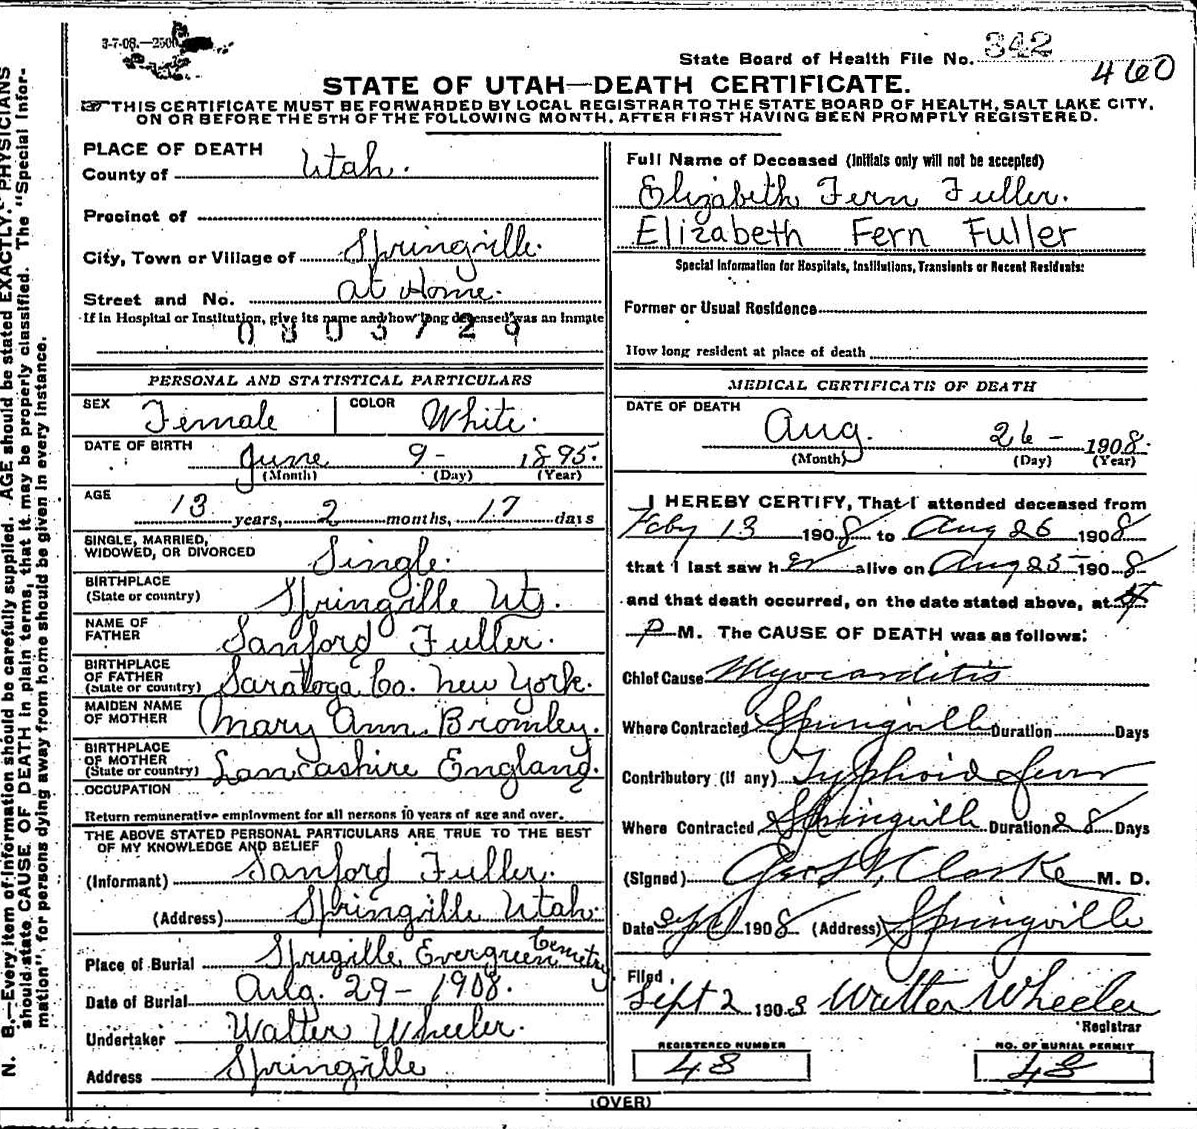 3-7-08.—2500
State Board of Health File No. 342
460
STATE OF UTAH—DEATH CERTIFICATE.
THIS CERTIFICATE MUST BE FORWARDED BY LOCAL REGISTRAR TO THE STATE BOARD OF HEALTH, SALT LAKE CITY,
ON OR BEFORE THE 5TH OF THE FOLLOWING MONTH, AFTER FIRST HAVING BEEN PROMPTLY REGISTERED.
PLACE OF DEATH
County of Utah.
Precinct of
City, Town or Village of Springville
Street and No. at Home.
If in Hospital or Institution, give its name and how long deceased was an inmate
0803729
PERSONAL AND STATISTICAL PARTICULARS
SEX Female COLOR White.
DATE OF BIRTH June 9- 1895.
(Month) (Day) (Year)
AGE 13 years, 2 months, 17 days
SINGLE, MARRIED,
WIDOWED, OR DIVORCED Single.
BIRTHPLACE
(State or country) Springville Ut.
NAME OF
FATHER Sanford Fuller.
BIRTHPLACE
OF FATHER
(State or country) Saratoga Co. New York.
MAIDEN NAME
OF MOTHER Mary Ann Bromley.
BIRTHPLACE
OF MOTHER
(State or country) Lancashire England.
OCCUPATION
Return remunerative employment for all persons 10 years of age and over.
THE ABOVE STATED PERSONAL PARTICULARS ARE TRUE TO THE BEST
OF MY KNOWLEDGE AND BELIEF
(Informant) Sanford Fuller.
(Address) Springville Utah.
Place of Burial Sprigille Evergreen Cemetery
Date of Burial Aug. 29- 1908.
Undertaker Walter Wheeler.
Address Springville
Full Name of Deceased (Initials only will not be accepted)
Elizabeth Fern Fuller.
Elizabeth Fern Fuller
Special Information for Hospitals, Institutions, Transients or Recent Residents:
Former or Usual Residence
How long resident at place of death
MEDICAL CERTIFICATE OF DEATH
DATE OF DEATH
Aug. 26- 1908.
(Month) (Day) (Year)
I HEREBY CERTIFY, That I attended deceased from
Feby 13 1908 to Aug 26 1908
that I last saw her alive on Aug 25- 1908
and that death occurred, on the date stated above, at 4
P M. The CAUSE OF DEATH was as follows:
Chief Cause Myocarditis
Where Contracted Springvill Duration Days
Contributory (if any) Typhoid fever
Where Contracted Springville Duration 28 Days
(Signed) Geo. Clarke M. D.
Date Sept 1 1908 (Address) Springville
Filed,
Sept 2 1908 Walter Wheeler
Registrar
REGISTERED NUMBER 48
NO. OF BURIAL PERMIT 48
(OVER)
N. B.—Every item of information should be carefully supplied. AGE should be stated EXACTLY. PHYSICIANS
should state CAUSE OF DEATH in plain terms, that it may be properly classified. The "Special Infor-
mation" for persons dying away from home should be given in every instance.